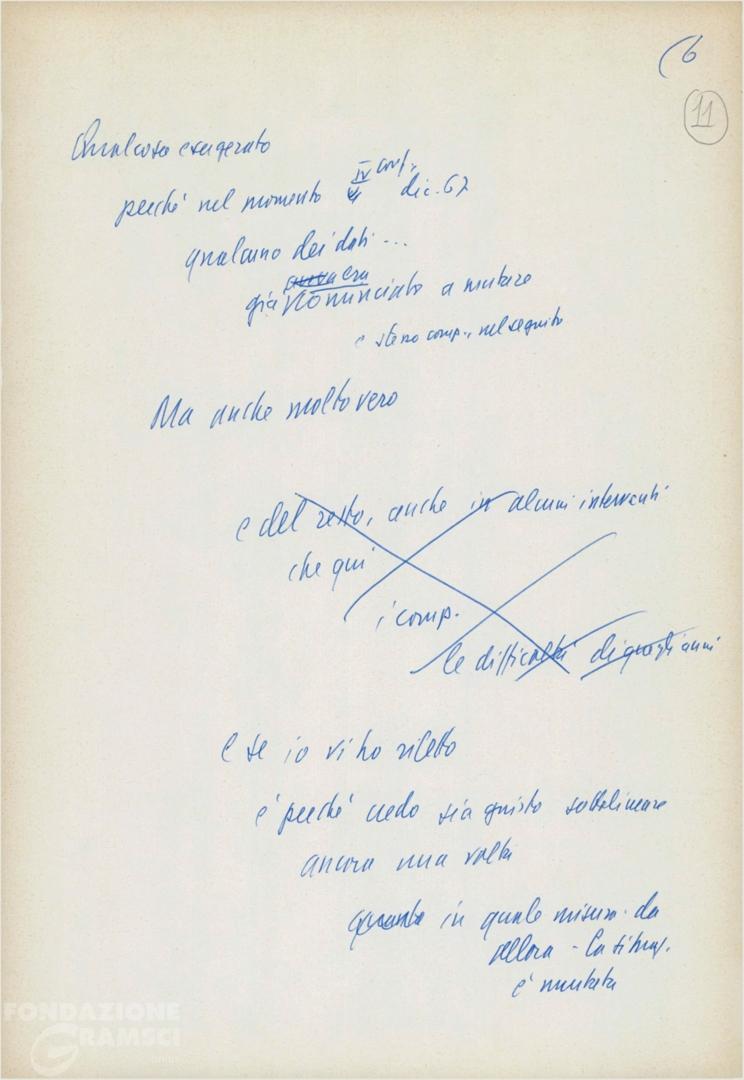 (6
11
Qualcosa esagerato
perché nel momento IV conf. dic. 67
qualcuno dei dati...
già aveva era
cominciato a mutare
e stesso comp., nel seguito
Ma anche molto vero
e del resto, anche in alcuni interventi
che qui
i comp.
le difficoltà di quegli anni
e se io vi ho riletto
è perché credo sia giusto sottolineare
ancora una volta
quanto in quale misura da
allora - la situaz.
è mutata
FONDAZIONE
GRAMSCI